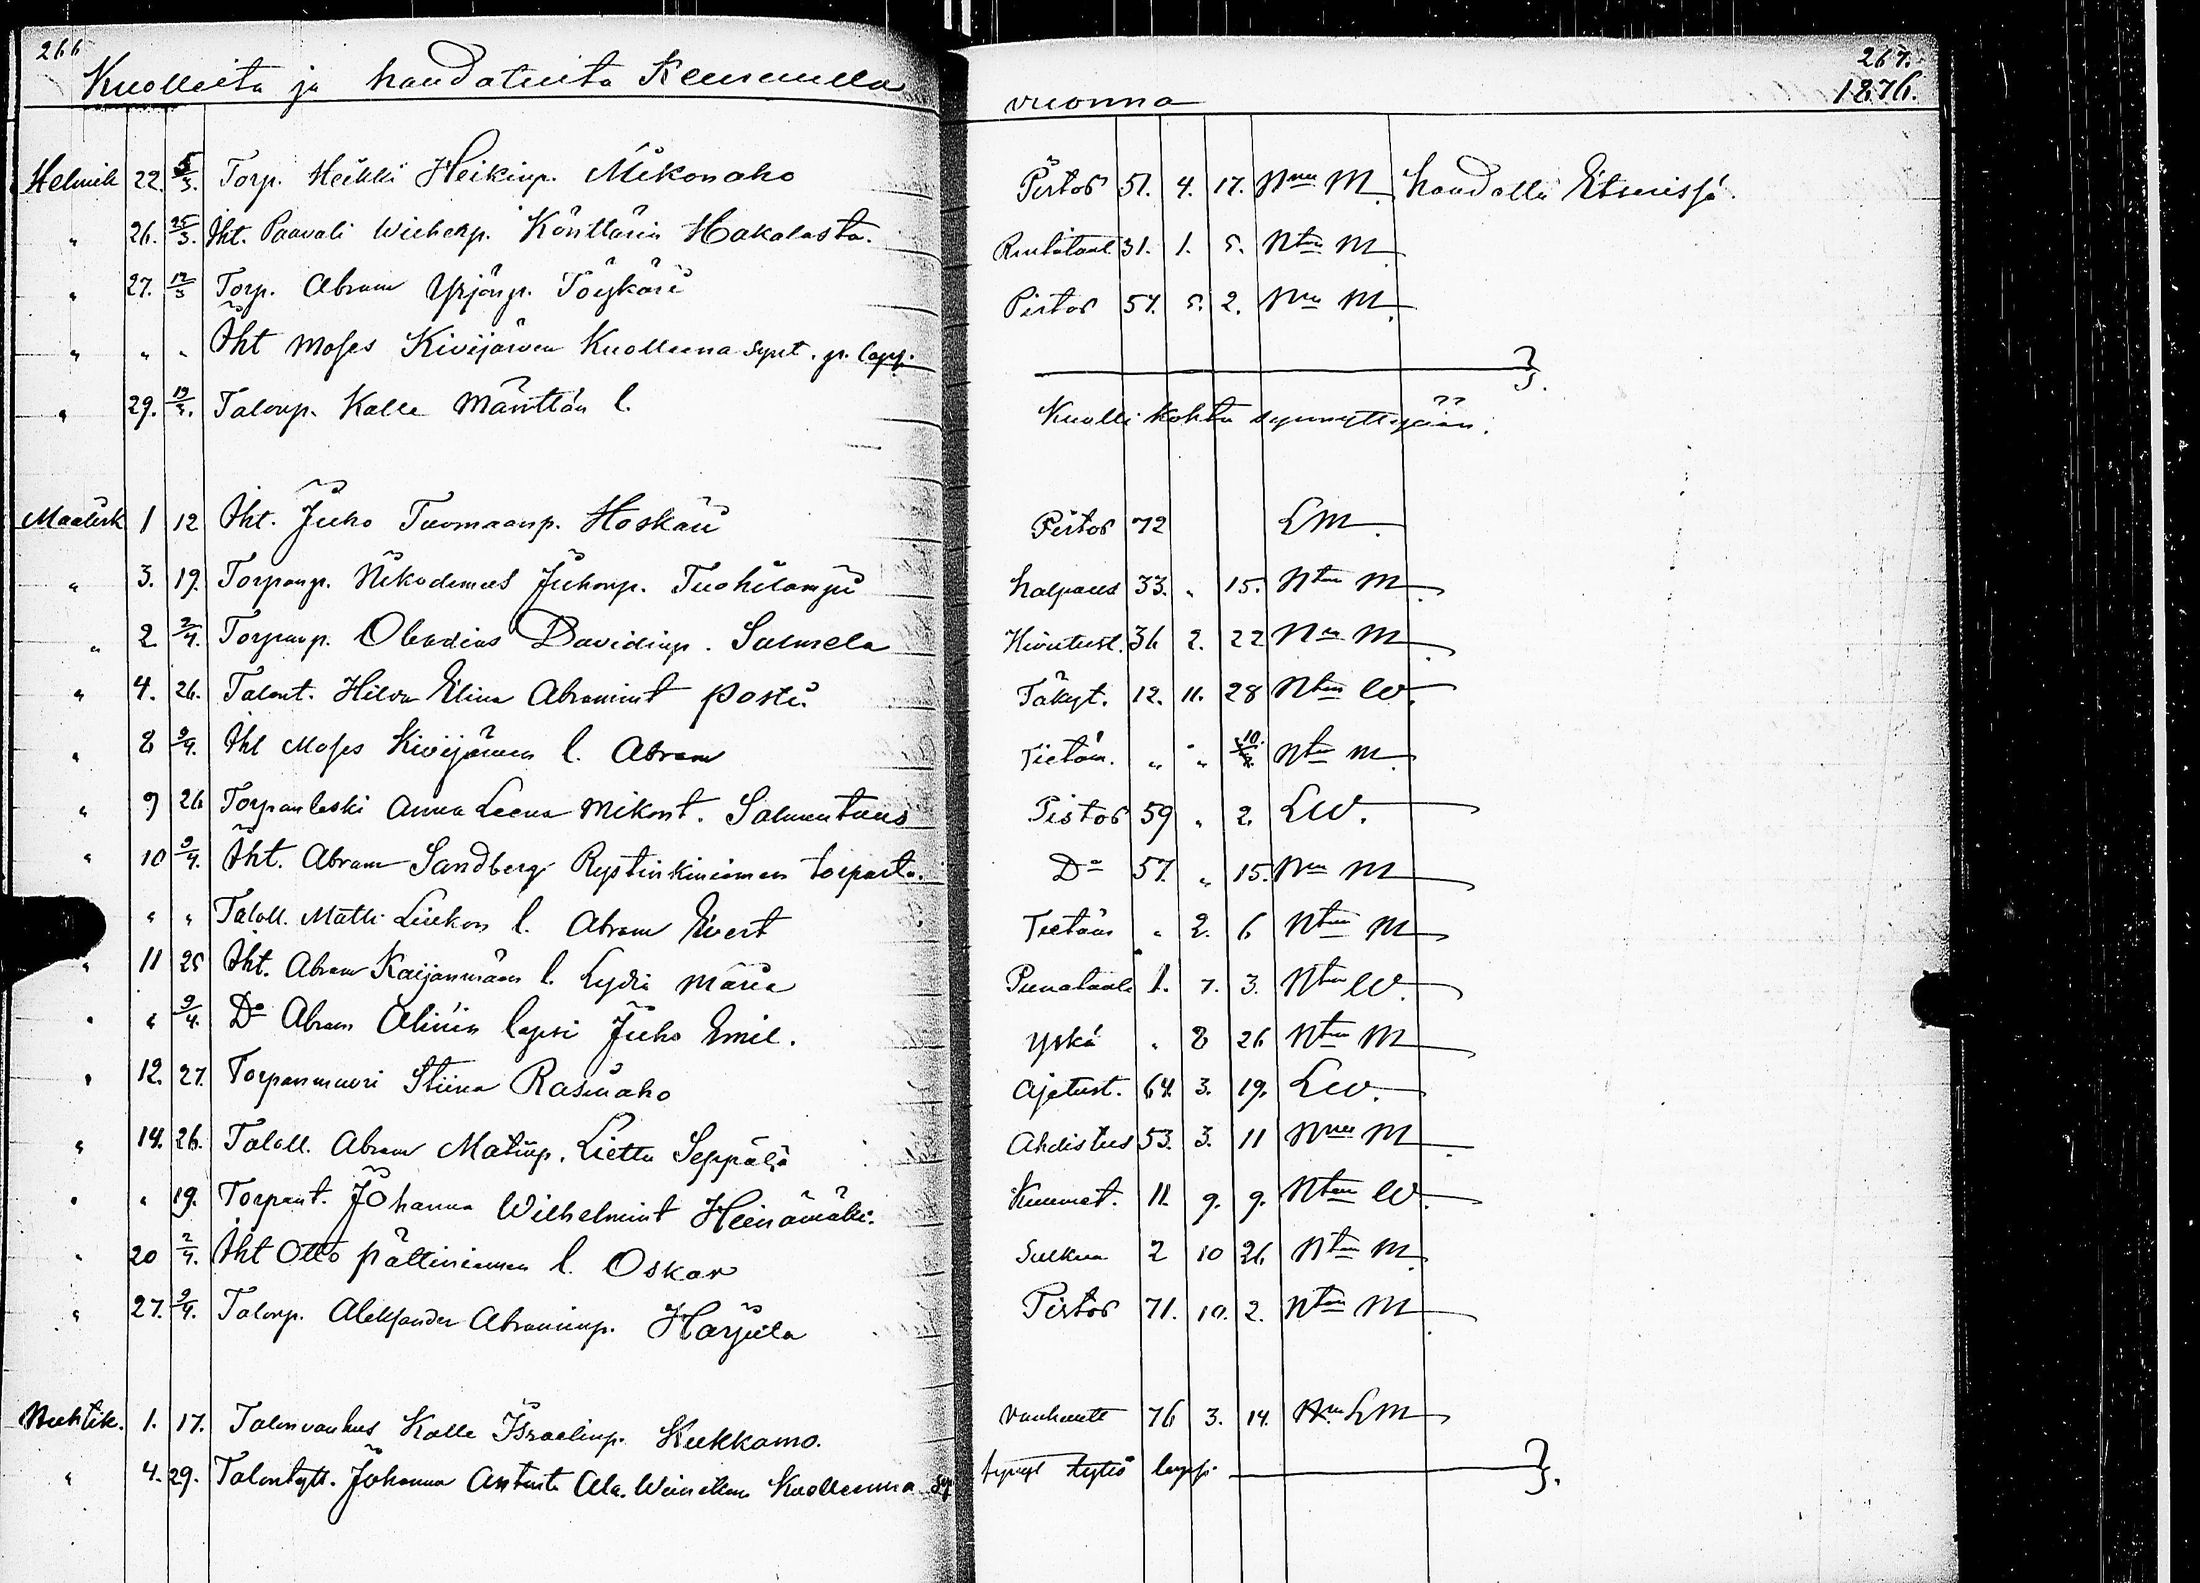 266
Kuolleita ja haudatuita Keuruulla
267.
vuonna 1876.
Helmik 22. 5/3. Torp. Heikki Heikinp. Mikonaho Pistos 51. 4. 17. Nnu M. haudattu Etserissä.
" 26. 25/3. Iht. Paavali Wilhelmp. Könttärin Hakalasta. 31. 1. 5. Ntn M.
" 27. 12/3 Torp. Abram Yrjönp. Töykäri Pistos 57. 5. 2. Nnu M.
" " " Iht Moses Kivijärven Kuolleena synt. p. laps.
" 29. 12/3. Talonp. Kalle Mänttän l. Kuolli kohta synnyttyään.
Maalisk 1 12 Iht. Juho Tuomaanp. Hoskari Pistos 72 LM.
" 3. 19. Torpanp. Nikodemus Juhonp. Tuohilampi halpaus 33. " 15. Ntn M.
" 2 2/4. Torpanp. Obadias Davidinp. Salmela 36 2. 22 Nnu M
" 4. 26. Talont. Hilda Elina Abramint Posti Täkyt. 12. 11. 28 Ntn W.
" 8 9/4. Iht Moses Kivijärven l. Abram Tietäm. " " 10. Ntn M.
" 9 26 Torpanleski Anna Leena Mikont. Salmentaus Pistos 59 " 2. LW.
" 10 9/4. Iht. Abram Sandberg Rystinkiniemen torpasta. Do 57. " 15. Nnu M
" " Taloll. Matti Liukon l. Abram Evert Tietäm " 2. 6 Ntn M
" 11 25 Iht. Abram Kaijanmäen l. Lydia Maria Punataati 1. 7. 3. Ntn W.
" " 9/4. Do Abram Alinin lapsi Juho Emil. Yskä " 8 26 Ntn M
" 12. 27. Torpanmuori Stiina Rasinaho Ajetust. 64. 3. 19. LW.
" 14. 26. Taloll. Abram Matinp. Liettu Seppälä Ahdistus 53. 3. 11 Nnu M
" " 19. Torpant. Johanna Wilhelmint Heinämäki. Kuumat. 11. 9. 9. Ntn W.
" 20 2/4. Iht Otto Pältiniemen l. Oskar 2 10 26 Ntn M.
" 27. 9/4. Talonp. Aleksander Abraminp. Harjula Pistos 71. 10. 2. Ntn M
Huhtik. 1. 17. Talonvanhus Kalle Israelinp. Kukkamo. Vanhuutt 76 3. 14. LM
" 4. 29. Talontytt. Johanna Antint Ala. Kuolleena sy syntynyt tyttö lapsi